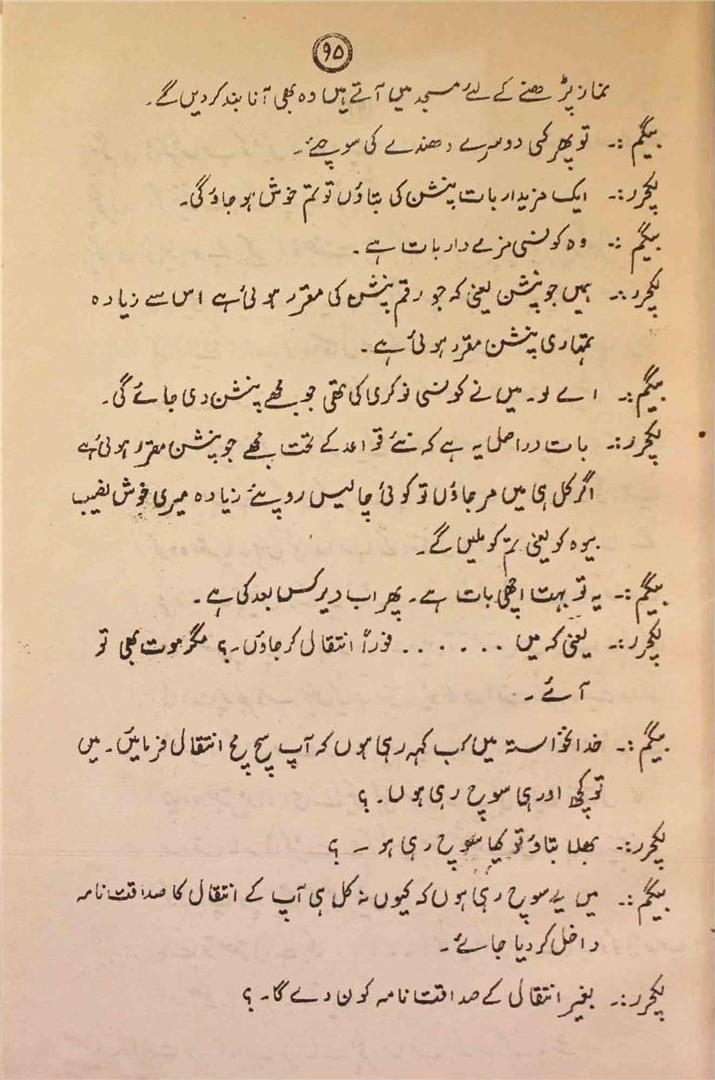 ۹۵
نماز پڑھنے کے لئے مسجد میں آتے ہیں وہ بھی آنا بند کر دیں گے۔
بیگم :۔ تو پھر کسی دوسرے دھندے کی سوچئے۔
لیکچرر:۔ ایک مزیدار بات پنشن کی بتاؤں تو تم خوش ہو جاؤ گی۔
بیگم :۔ وہ کونسی مزے دار بات ہے۔
لیکچرر:۔ ہمیں جو پنشن یعنی کہ جو رقم پنشن کی مقرر ہوئی ہے اس سے زیادہ
تمہاری پنشن مقرر ہوئی ہے۔
بیگم :۔ اے لو۔ میں نے کونسی نوکری کی تھی جو مجھے پنشن دی جائے گی۔
لیکچرر:۔ بات دراصل یہ ہے کہ نئے قواعد کے تحت مجھے جو پنشن مقرر ہوئی ہے
اگر کل ہی میں مر جاؤں تو کوئی چالیس روپئے زیادہ میری خوش نصیب
بیوہ کو یعنی تم کو ملیں گے۔
بیگم :۔ یہ تو بہت اچھی بات ہے۔ پھر اب دیر کس بعد کی ہے۔
لیکچرر:۔ یعنی کہ میں ...... فوراً انتقال کر جاؤں۔؟ مگر موت بھی تو
آئے۔
بیگم :۔ خدانخواستہ میں کب کہہ رہی ہوں کہ آپ سچ مچ انتقال فرمائیں۔ میں
تو کچھ اور ہی سوچ رہی ہوں۔؟
لیکچرر:۔ بھلا بتاؤ تو کیا سوچ رہی ہو ۔ ؟
بیگم :۔ میں یے سوچ رہی ہوں کہ کیوں نہ کل ہی آپ کے انتقال کا صداقت نامہ
داخل کر دیا جائے۔
لیکچرر:۔ بغیر انتقال کے صداقت نامہ کون دے گا۔؟